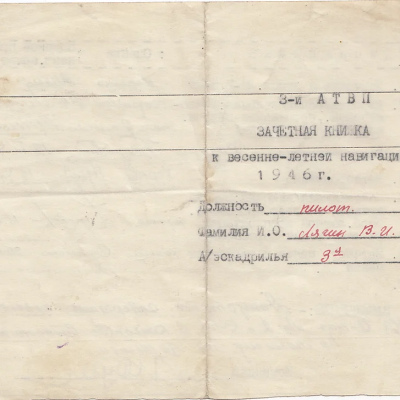 3-й А Т В П
ЗАЧЕТНАЯ КНИЖКА
к весенне-летней навигаци
1 9 4 6 г.
Должность пилот.
Фамилия И.О. Лягин В.И.
А/эскадрилья 3я